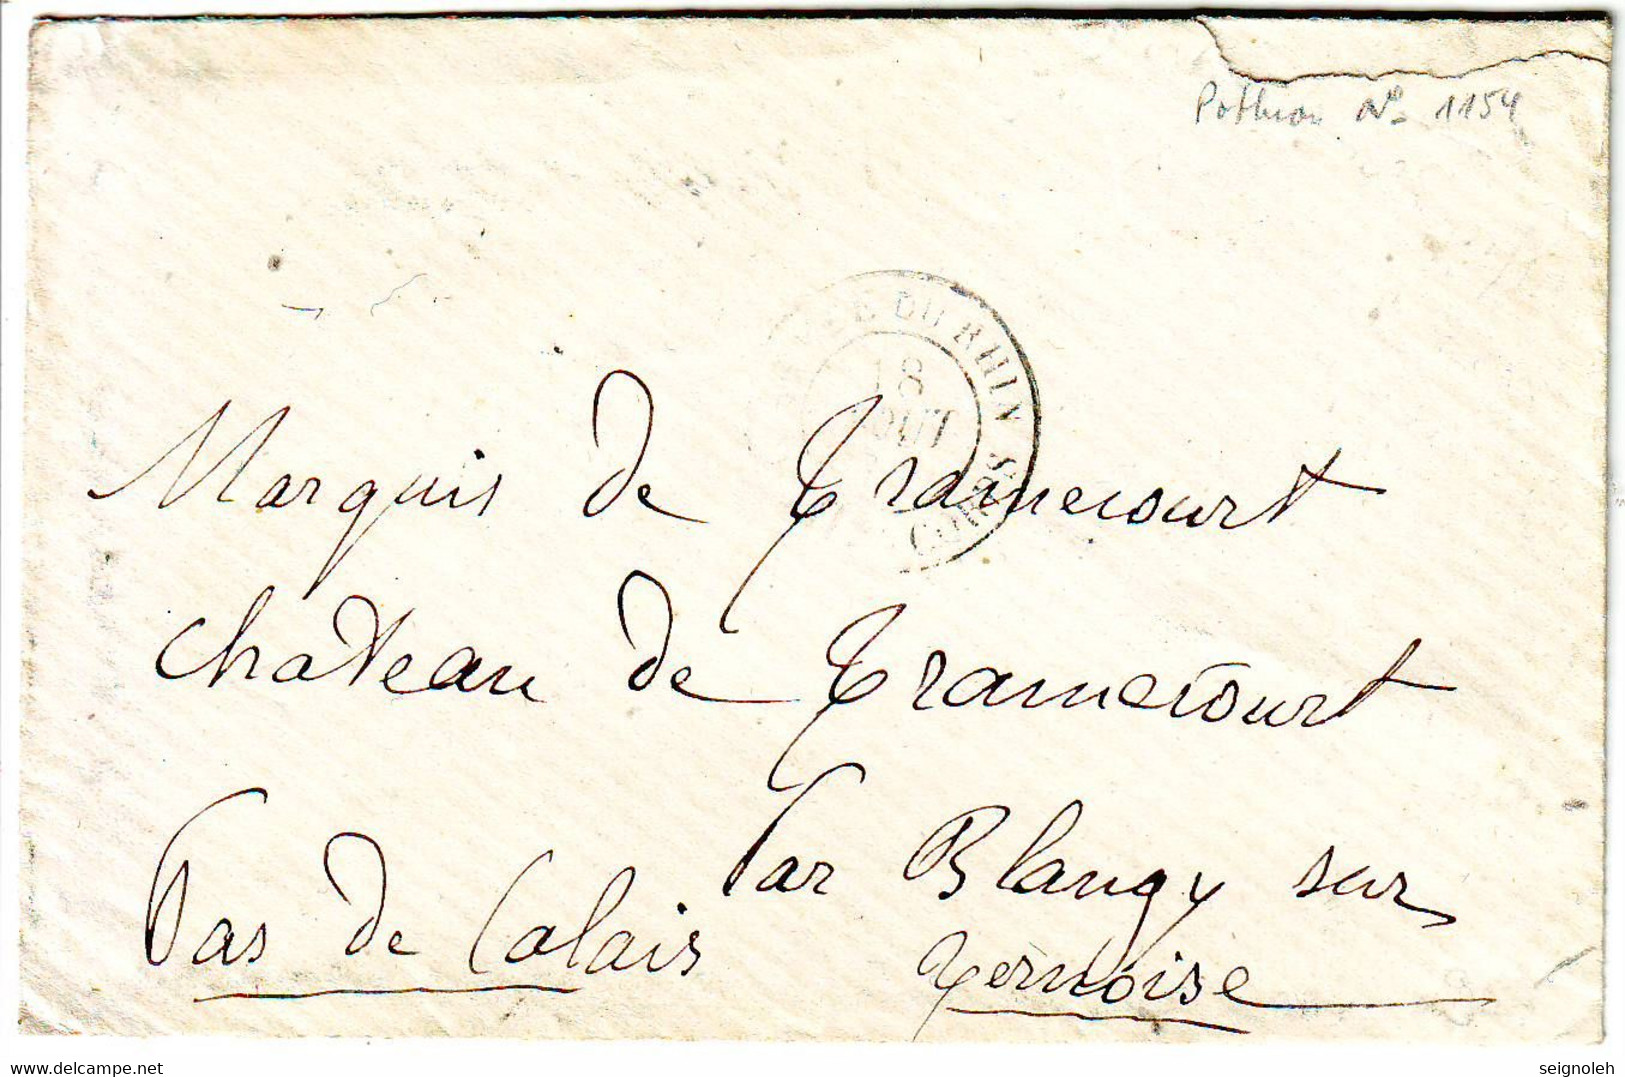 Pothion N° 1154
ARMÉE DU RHIN
18
AOUT
CORPS
Marquis de Tramecourt
Chateau de Tramecourt
Par Blangy sur
Ternoise
Pas de Calais
delcampe.net
seignoleh